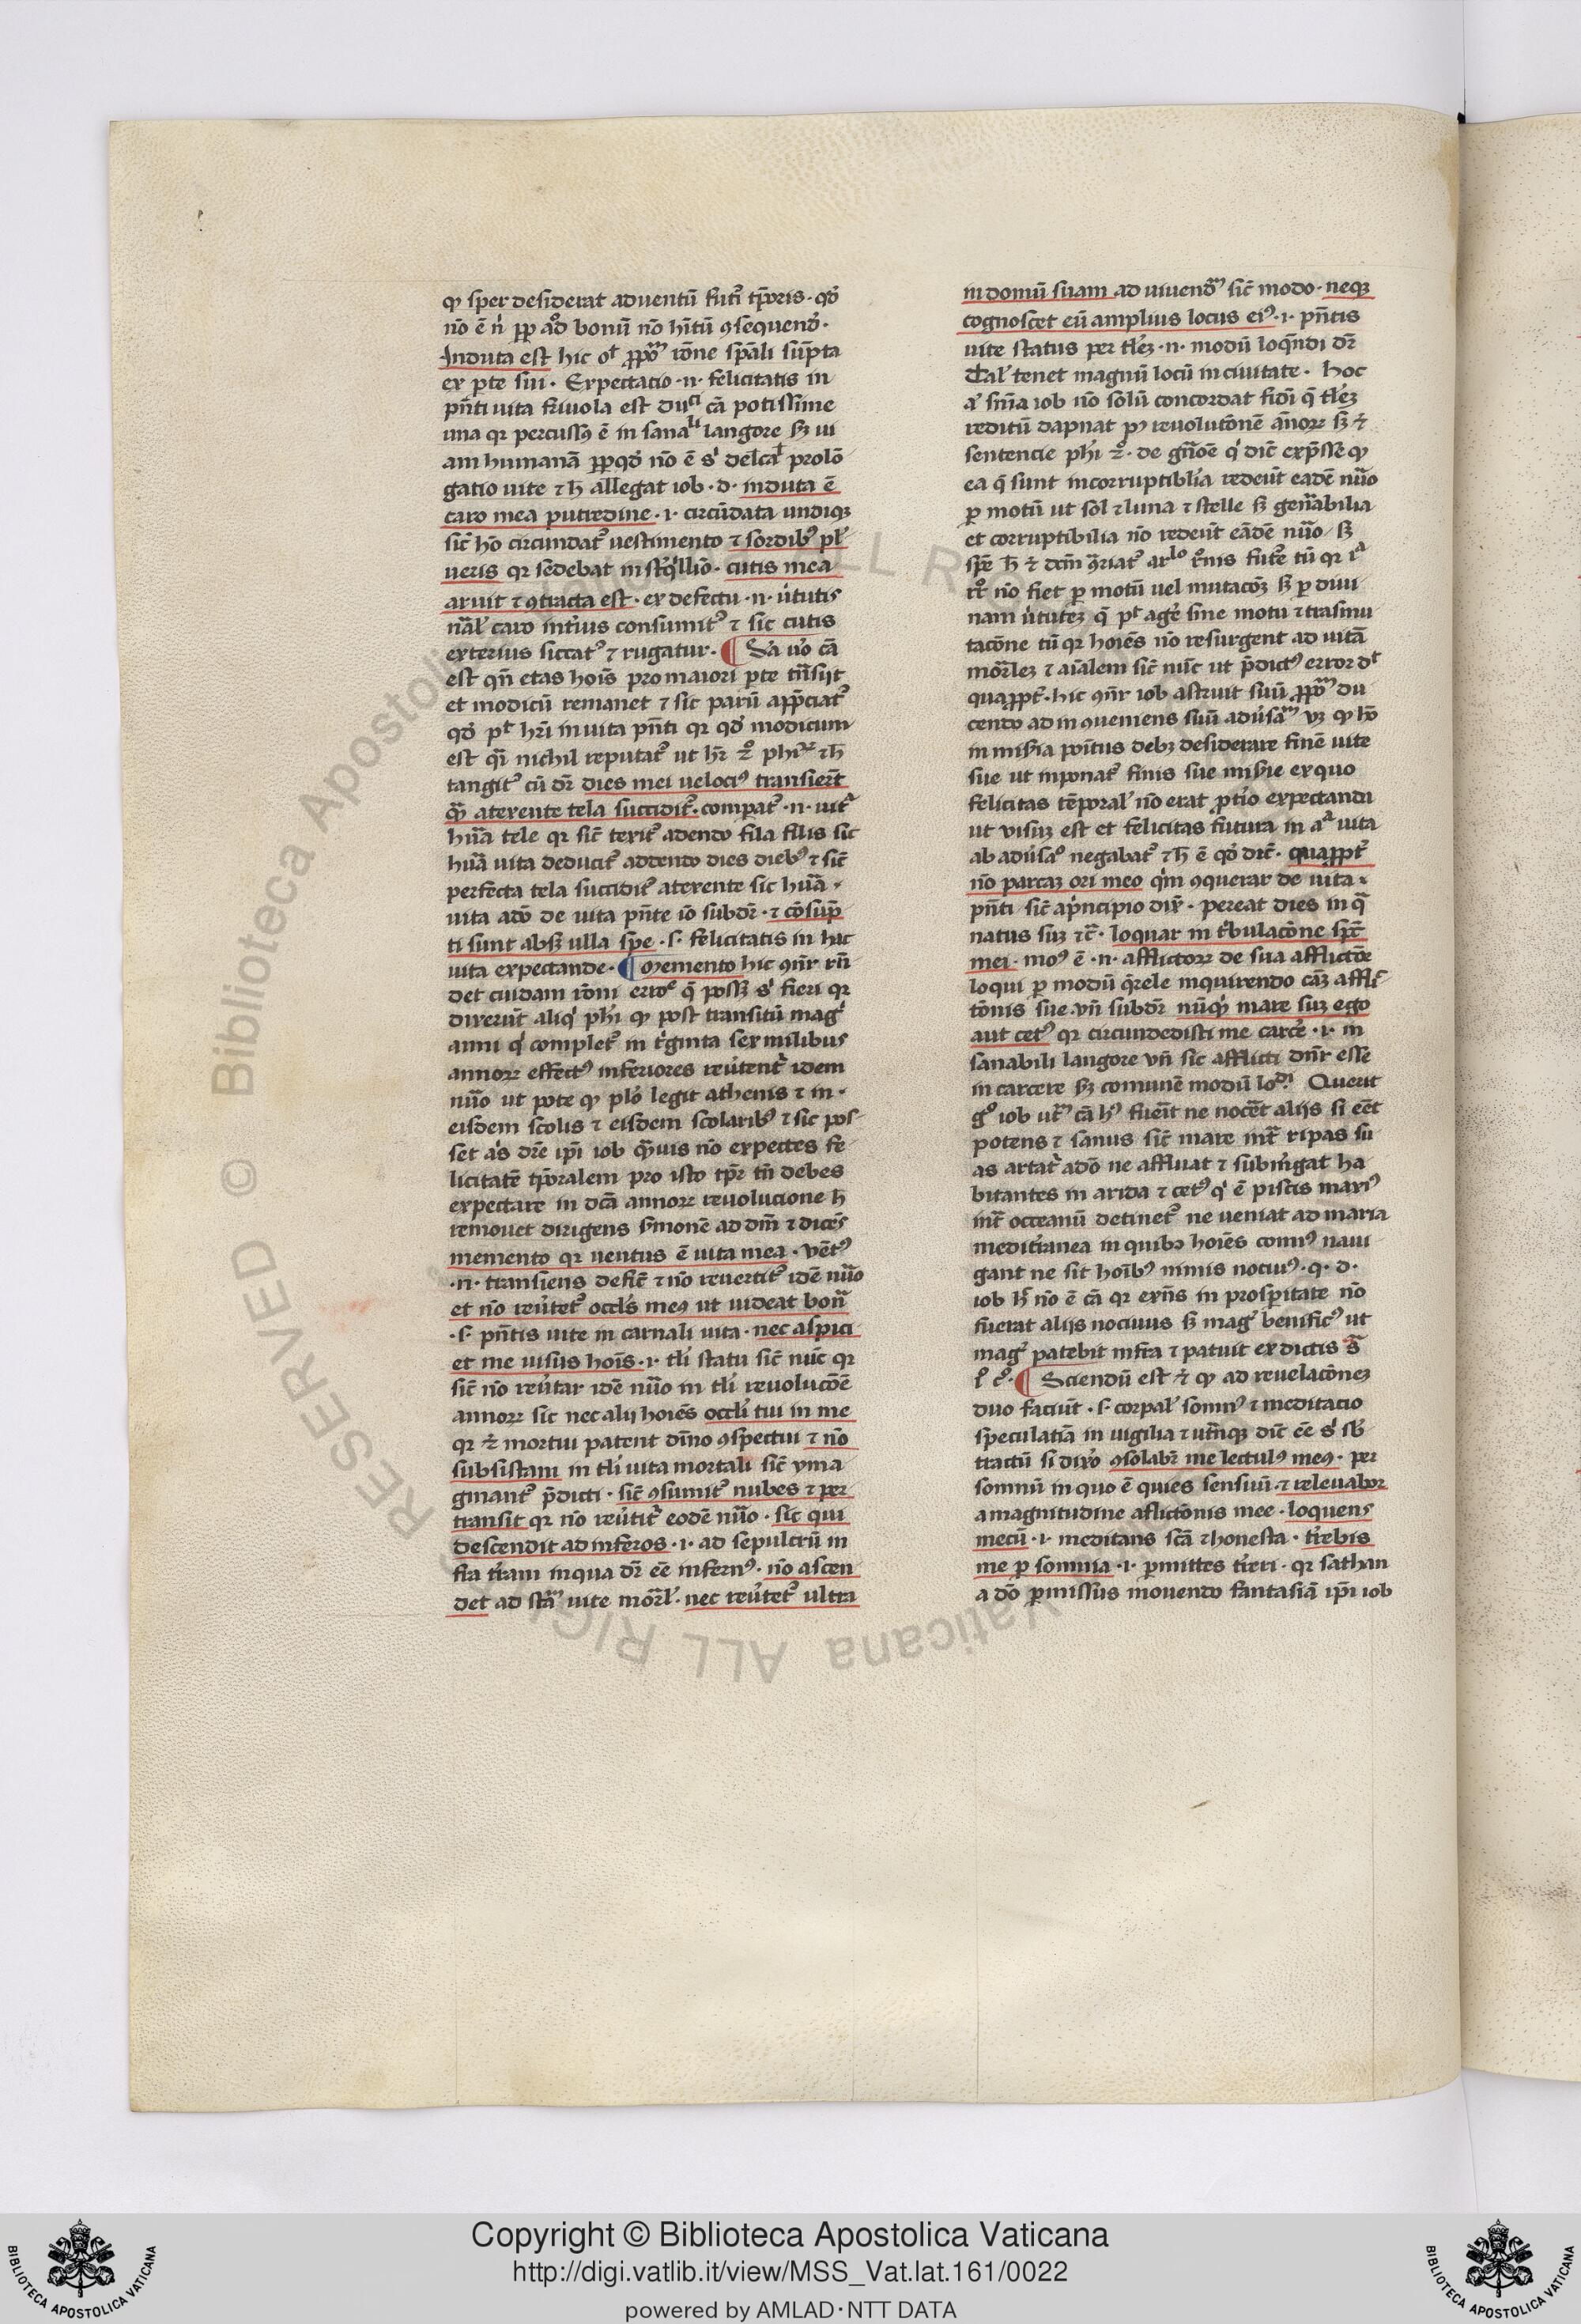 ꝙ sꝑ desiderat aduentū futī tp̄oris · qd̓
nō ē nͥ ꝓp̄ aꝺ bonū nō hītū ꝯsequend̓ ·
Induta est hic
ex ꝑte sui · Expectatio · n · felicitatis in
pn̄ti uita friuola est cā potissime
una qr percussꝰ ē in langore sꝫ ui
am humanā nō ē prolō
gatio uite ⁊ ħ allegat iob · d · induta ē
caro mea putredine · i · circūdata undiqꝫ
sic̄ hō circundatᷣ uestimento ⁊ sordibꝰ pl̓
ueris qr sedebat in · cutis mea
aruit ⁊ ꝯtracta est · ex defectu · n · ūtutis
nāl̓ caro int̓ius consumitᷣ ⁊ sic cutis
exterius siccatᷣ ⁊ rugatur · ¶ uo̓ cā
est qn̄ etas hoīs pro maiori ꝑte tn̄sijt
et modicū remanet ⁊ sic parū app̄ciatᷣ
qd̓ pᵗ hr̄i in uita pn̄ti qr qd̓ modicum
est qͣi nichil reputatᷣ ut hr̄ 2° phiᵒꝝ ⁊ ħ
tangitᷣ cū dr̄ dies mei uelociꝰ transier̄t
qͣꝫ a texente tela succiditᷣ · compatᷣ · n · uitᷓ
hūa tele qr sic̄ texitᷣ adendo fila filis sic
hūa uita deducitᷣ addendo dies diebꝰ ⁊ sic̄
perfecta tela succiditᷣ a texente sic hūa ·
uita adō de uita pn̄te iō subdr̄ · ⁊ cōsūp̄
ti sunt absꝫ ulla spe · s · felicitatis in hac
uita expectande · ¶ Memento hic ꝯn̄r rn̄
det cuidam rōni q̄ possꝫ fieri qr
dixerūt aliqͥ phi̓ ꝙ post transitū magͥ
anni qͥ completᷣ in tͥginta sex milibus
annoꝝ effectꝰ inferiores reu̓tentᷣ idem
nūo ut pote ꝙ plō legit athenis ⁊ in ·
eisdem scolis ⁊ eisdem scolaribꝰ ⁊ sic pos
set aͥs dr̄e ip̄i iob qͣꝫuis nō expectes fe
licitatē tp̄oralem pro isto tp̄r tn̄ debes
expectare in dc̄a annoꝝ reuolucione ħ
remouet dirigens s̓monē ad dm̄ ⁊ dicēs
memento qr uentus ē uita mea · vētꝰ
· n · transiens defic̄ ⁊ nō reuertitᷣ idē nūo
et nō reu̓tetᷣ occl̓s meꝰ ut uideat bonͣ
· s · pn̄tis uite in carnali uita · nec aspici
et me uisus hoīs · i · tl̓i statu sic̄ nūc qr
sic̄ nō reu̓tar idē nūo in tl̓i reuolucōē
annoꝝ sic nec alij hoīēs occl̓i tui in me
qr ⁊ mortui patent dīno ꝯspectui ⁊ nō
subsistam in tl̓i uita mortali sic̄ yma
ginantᷣ p̄dicti · sic̄ ꝯsumitᷣ nubes ⁊ per
transit qr nō reu̓titᷣ eodē nūo · sic qui
descendit ad inferos · i · ad sepulcrū in
fra t̓ram in qua dr̄ eē infernꝰ · nō ascen
det ad stāꝫ uite mōrl̓ · nec reu̓tetᷣ ultra
in domū suam ad uiuendͫ sic̄ modo · neqꝫ
cognoscet eū amplius locus eiꝰ · i · pn̄tis
uite status per tl̓eꝫ · n · modū loq̄ndi dr̄
Tal̓ tenet magnū locū in ciuitate · hoc
aͭ sn̄ia iob nō solū concordat fidi̓ q̄ tl̓eꝫ
reditū dapnat reuolutōnē an̄oꝝ sꝫ ⁊
sentencie phi̓ 2° · de gn̄oē qͥ dic̄ exp̄sse ꝙ
ea q̄ sunt incorruptiblia redeūt eadē nūo
ꝑ motū ut sol ⁊ luna ⁊ stelle sꝫ gen̄abilia
et corruptibilia nō redeūt eādē nūo sꝫ
spē tū qr
nō fiet ꝑ motū uel mutacōꝫ sꝫ ꝑ diui
nam ūtuteꝫ q̄ pᵗ age̓ sine motu ⁊ trasmu
tacōne tū qr hoīēs nō resurgent ad uitā
mōrleꝫ ⁊ aīalem sic̄ nūc ut p̄dictꝰ error dᵗ
quaꝓpt̓ · hic ꝯn̄r iob astruit suū du
cendo ad inꝯueniens suū adu̓sāꝫ vꝫ ꝙ hō
in mis̓ia poītus debꝫ desiderare finē uite
sue ut inponatᷣ finis sue mis̓ie ex quo
felicitas tēporal̓ nō erat ptīo expectandi
ut visuꝫ est et felicitas futura in aᷓ uita
ab adu̓sāo negabatᷣ ⁊ ħ ē qd̓ dic̄ · quaꝓpt̓
nō parcaꝫ ori meo qͥn ꝯquerar de uita ·
pn̄ti sic̄ a pͥncipio dix̄ · pereat dies in qᷓ
natus suꝫ ⁊c̄ · loquar in tͥbulacōne spc̄
mei · moꝰ ē · n · afflictoꝝ de sua afflictōe
loqui ꝑ modū q̄rele inquirendo cāꝫ afflic̄
tōnis sue · vn̄ subdr̄ nūqͥd mare suꝫ ego
aut cetꝰ qr circumdedisti me carce̓ · i · in
sanabili langore vn̄ sic afflicti dn̄r esse
in carcere sꝫ comunē modū lo · Querit
gͦ iob cā hꝰ fuer̄it ne nocet̄ alijs si eēt
potens ⁊ sanus sic̄ mare int̄ ripas su
as artatᷣ adō ne affluat ⁊ submͥgat ha
bitantes in arida ⁊ cetꝰ qͥ ē piscis marꝰ
int̄ occeanū detinetᷣ ne ueniat ad maria
medit̓ranea in quibꝰ hoīēs comꝰ naui
gant ne sit hoībꝰ nimis nociuꝰ · q · d ·
iob hͥ nō ē cā qr exn̄s in prosp̄itate nō
fuerat alijs nociuus sꝫ magͥ benificꝰ ut
magͥ patebit infra ⁊ patuit ex dictis
¶ Sciendū est ⁊ ꝙ ad reuelacōneꝫ
duo faciūt · s · corpal̓ somnꝰ ⁊ meditacio
speculatiā in uigilia ⁊ ut̄mqꝫ dic̄ eē sͥ sb̓
tractū si dixo̓ ꝯsolabr̄ me lectulꝰ meꝰ · per
somnū in quo ē quies sensiuū · ⁊ releuabor
a magnitudine aflictōnis mee · loquens
mecū · i · meditans scā ⁊ honesta · t̓rebis
me ꝑ somnia · i · ꝑmittes t̓reri · qr sathan
a dō ꝑmissus mouendo fantasiā ip̄i iob
RESERVED © Biblioteca Apostolica Vaticana ALL RIGHTS
Copyright © Biblioteca Apostolica Vaticana
http://digi.vatlib.it/view/MSS_Vat.lat.161/0022
powered by AMLAD·NTT DATA
BIBLIOTECA APOSTOLICA VATICANA
BIBLIOTECA APOSTOLICA VATICANA